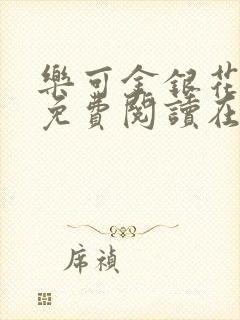 樂可金銀花
免費閱讀在
席禎